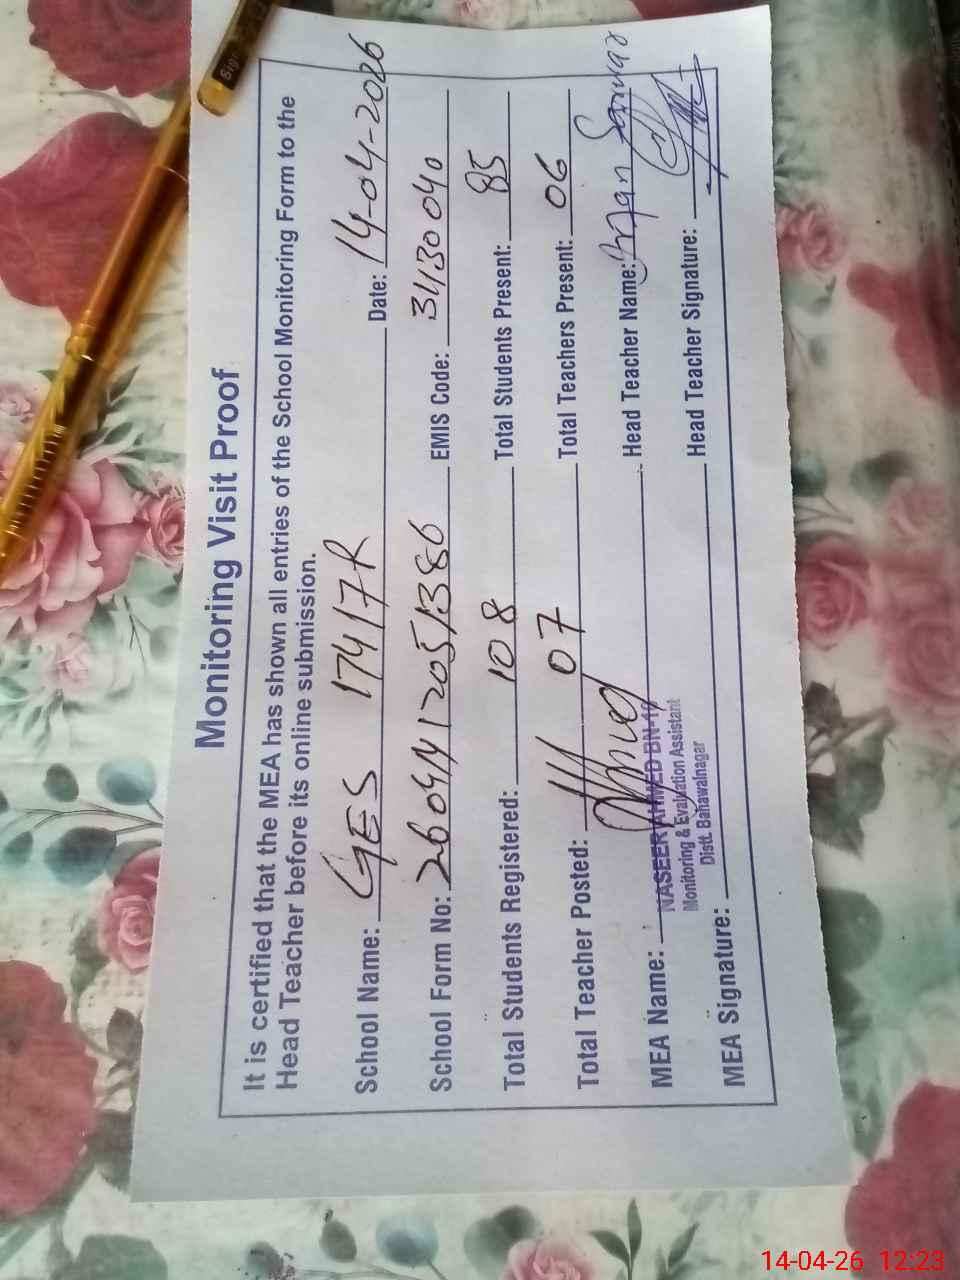 Monitoring Visit Proof
It is certified that the MEA has shown all entries of the School Monitoring Form to the
Head Teacher before its online submission.
School Name: GES 174/7R Date: 14-04-2026
School Form No: EMIS Code: 31130040
Total Students Registered: 108 Total Students Present: 85
Total Teacher Posted: 07 Total Teachers Present: 06
MEA Name: NASEER AHMED BN-10 Head Teacher Name:
Monitoring & Evaluation Assistant
Distt. Bahawalnagar
MEA Signature: Head Teacher Signature:
14-04-26 12:23